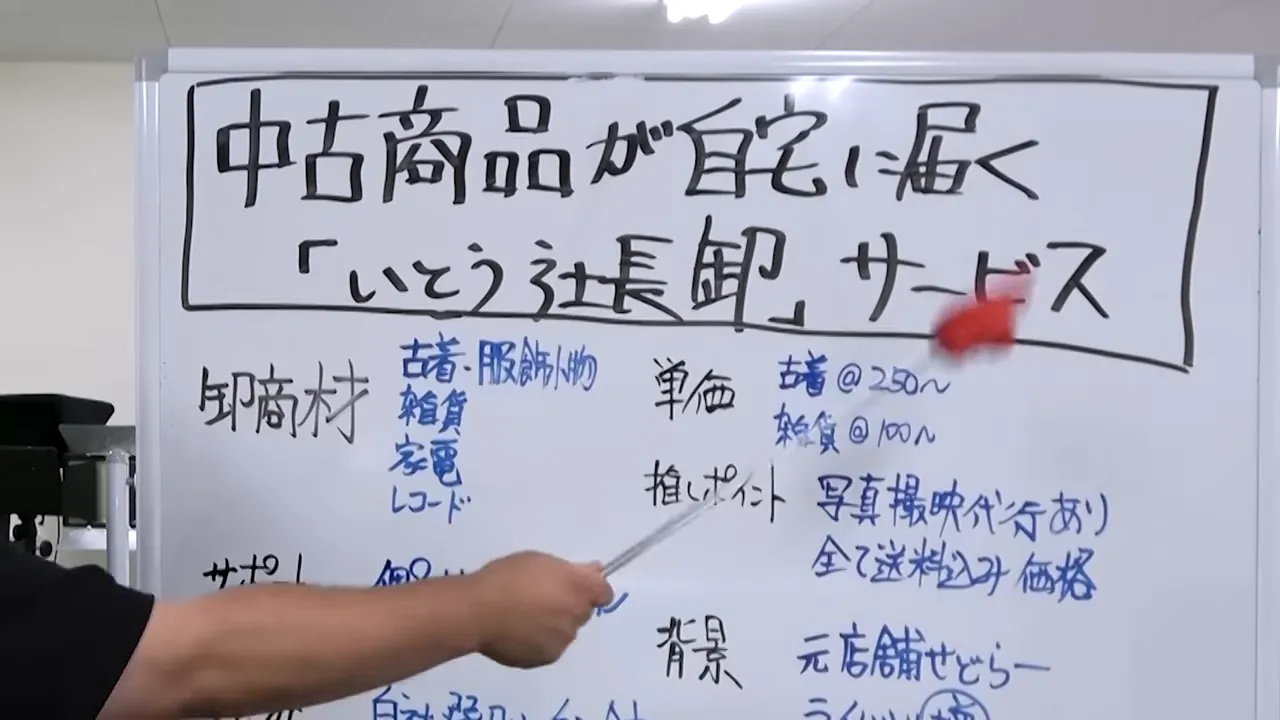 中古商品が自宅に届く
「いとう社長卸」サービス
卸商材
古着・服飾小物
雑貨
家電
レコード
単価
古着@250~
雑貨@100~
推しポイント
写真撮映代行あり
全て送料込み価格
サポート
背景
元店舗せどらー